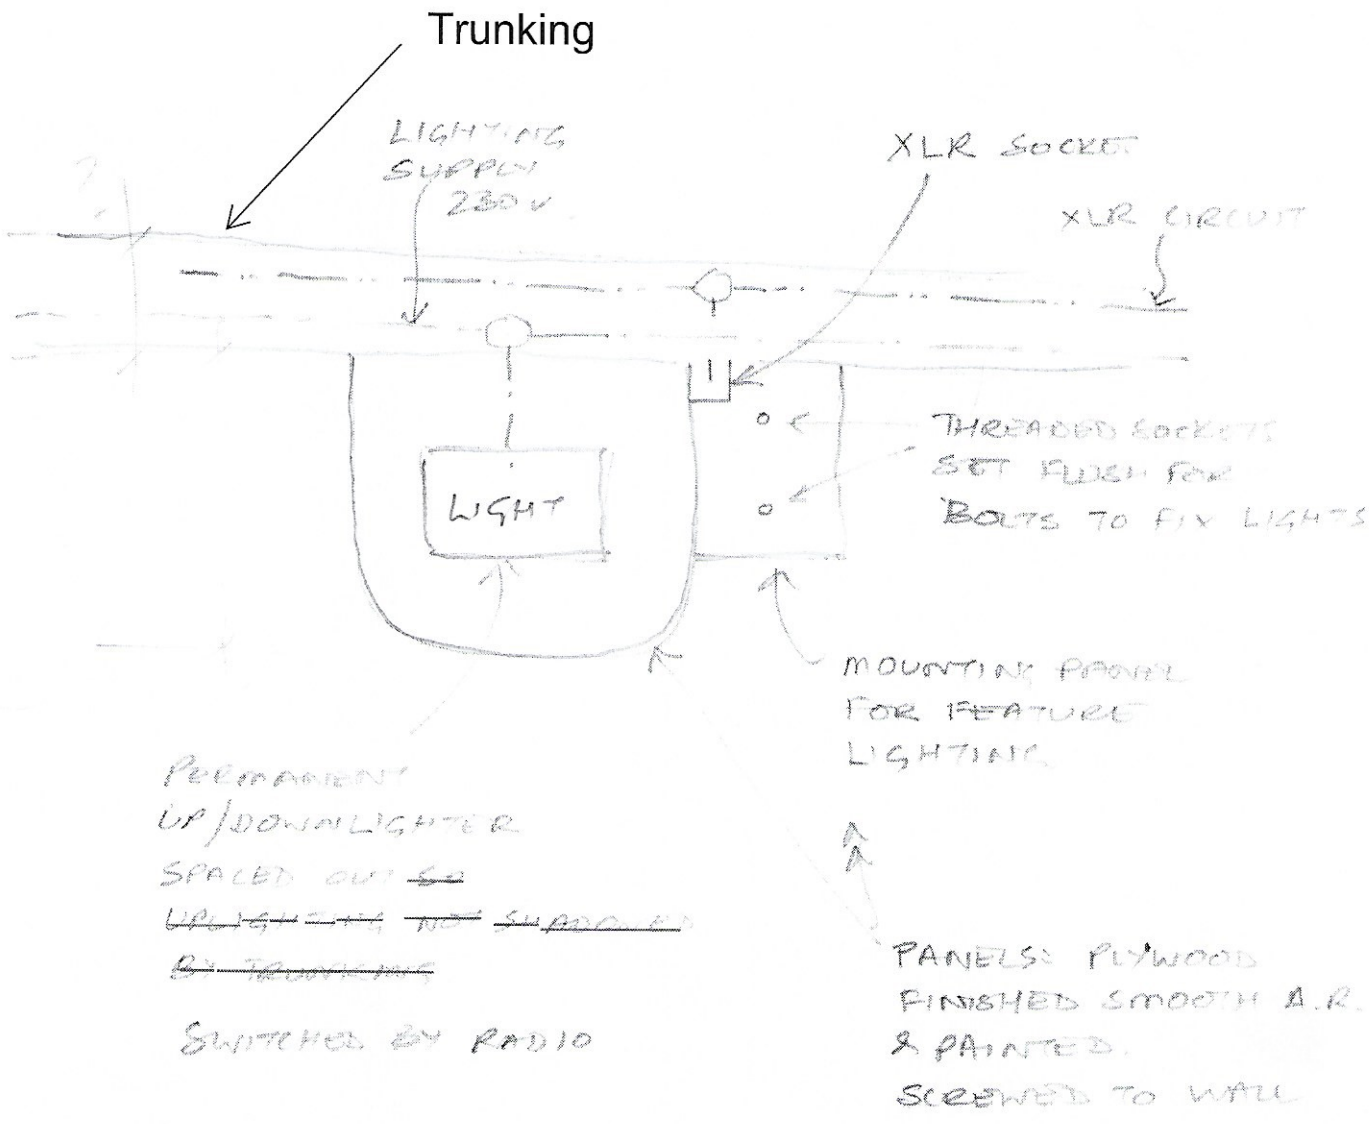 Trunking
LIGHTING
SUPPLY
230V
XLR SOCKET
XLR CIRCUIT
THREADED SOCKETS
SET FLUSH FOR
BOLTS TO FIX LIGHTS
LIGHT
MOUNTING PANEL
FOR FEATURE
LIGHTING
PERMANENT
UP/DOWNLIGHTER
SPACED OUT SO
UPLIGHTING NOT SHADOWED
BY TRUNKING
SWITCHED BY RADIO
PANELS: PLYWOOD
FINISHED SMOOTH A.R.
& PAINTED.
SCREWED TO WALL